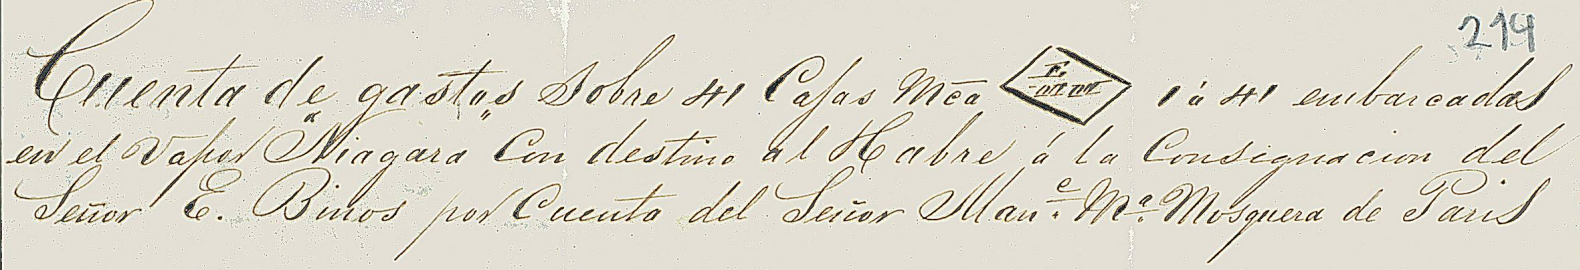 214
Cuenta de gastos sobre 41 Cajas Mca 1 á 41 embarcadas
en el Vapor "Niagara" Con destino al Habre á la Consignacion del
Señor E. Binos por Cuenta del Señor Man.e Ma. Mosquera de Paris